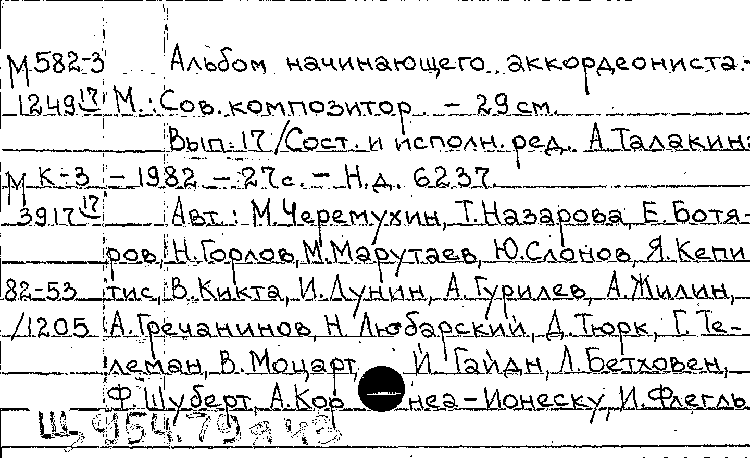 М 582-3 Альбом начинающего аккордеониста.-
1249 17 М.: Сов. композитор. - 29 см.
Вып. 17 / Сост. и исполн. ред. А. Талакин.
М К-3 - 1982 - 27 с. - Н.д. 6237.
3917 17 Авт.: М. Черемухин, Т. Назарова, Е. Ботя-
ров, Н. Горлов, М. Марутаев, Ю. Слонов, Я. Кепи
82-53 тис, В. Кикта, И. Лунин, А. Гурилев, А. Жилин,
/1205 А. Гречанинов, Н. Любарский, Д. Тюрк, Г. Те-
леман, В. Моцарт, И. Гайдн, Л. Бетховен,
Ф. Шуберт, А. Кор неа-Ионеску, И. Флегль
Щ 954.79 я 43